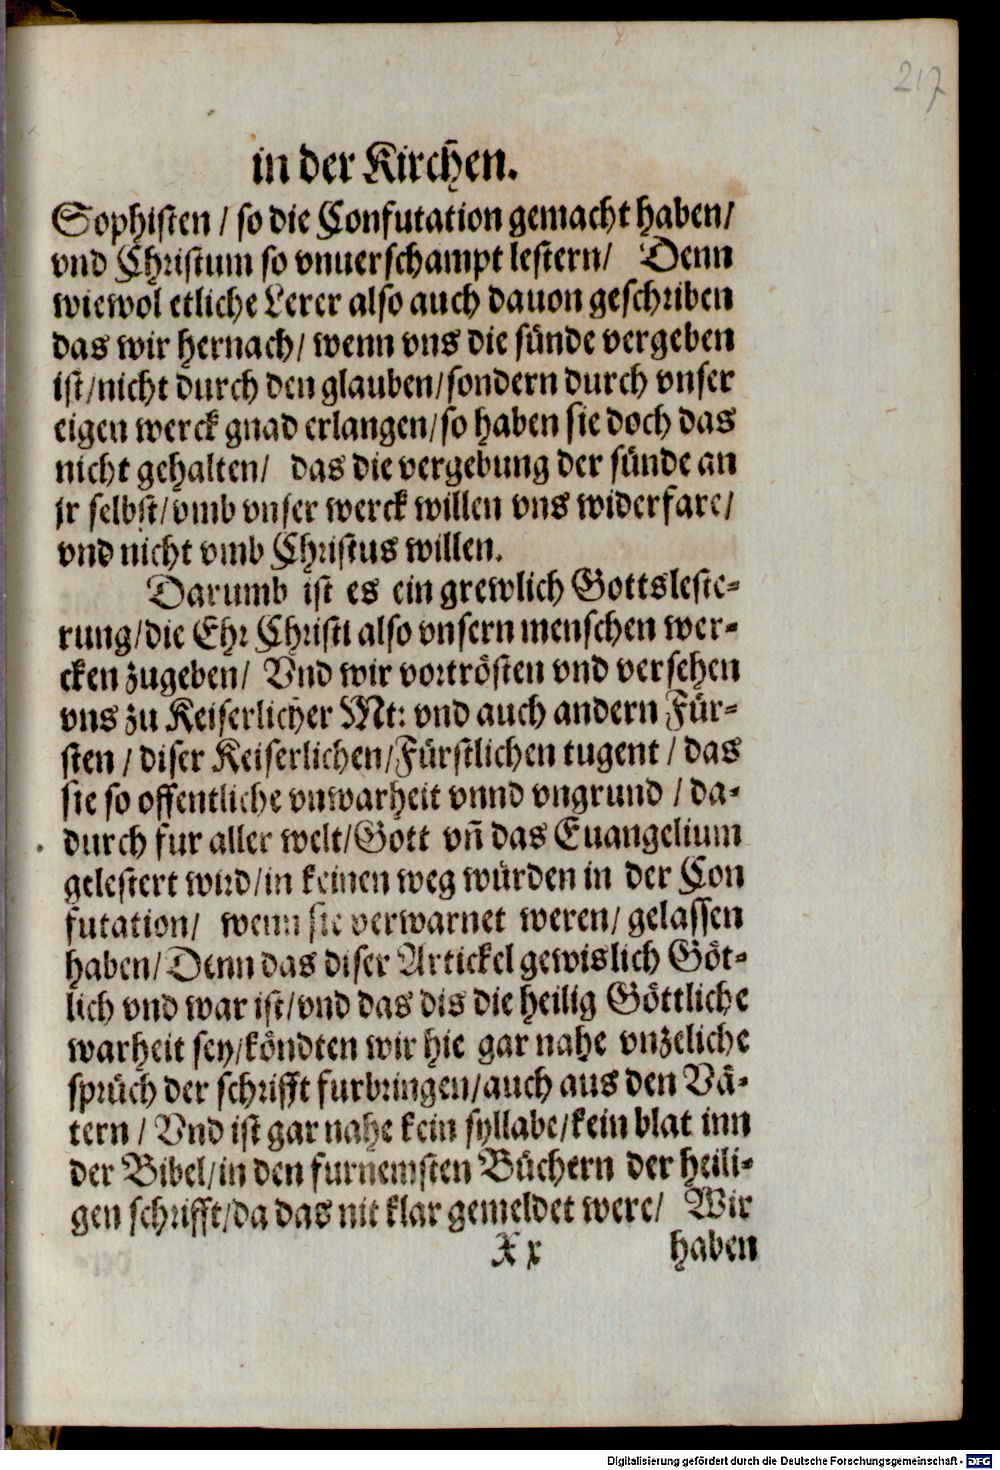 217
in der Kirchen.
Sophisten / so die Confutation gemacht haben/
vnd Christum so vnuerschampt lestern/ Denn
wiewol etliche Lerer also auch dauon geschriben
das wir hernach/ wenn vns die sünde vergeben
ist/nicht durch den glauben/sondern durch vnser
eigen werck gnad erlangen/so haben sie doch das
nicht gehalten/ das die vergebung der sünde an
jr selbst/vmb vnser werck willen vns widerfare/
vnd nicht vmb Christus willen.
Darumb ist es ein grewlich Gottsleste-
rung/die Ehr Christi also vnsern menschen wer-
cken zugeben/ Vnd wir vortrösten vnd versehen
vns zu Keiserlicher Mt: vnd auch andern Für-
sten / diser Keiserlichen/Fürstlichen tugent / das
sie so offentliche vnwarheit vnnd vngrund / da-
durch fur aller welt/Gott vñ das Euangelium
gelestert wird/in keinen weg würden in der Con
futation/ wenn sie verwarnet weren/ gelassen
haben/Denn das diser Artickel gewislich Göt-
lich vnd war ist/vnd das dis die heilig Göttliche
warheit sey/köndten wir hie gar nahe vnzeliche
sprüch der schrifft furbringen/auch aus den Vä-
tern / Vnd ist gar nahe kein syllabe/kein blat inn
der Bibel/in den furnemsten Büchern der heili-
gen schrifft/da das nit klar gemeldet were/ Wir
Xx haben
Digitalisierung gefördert durch die Deutsche Forschungsgemeinschaft - DFG